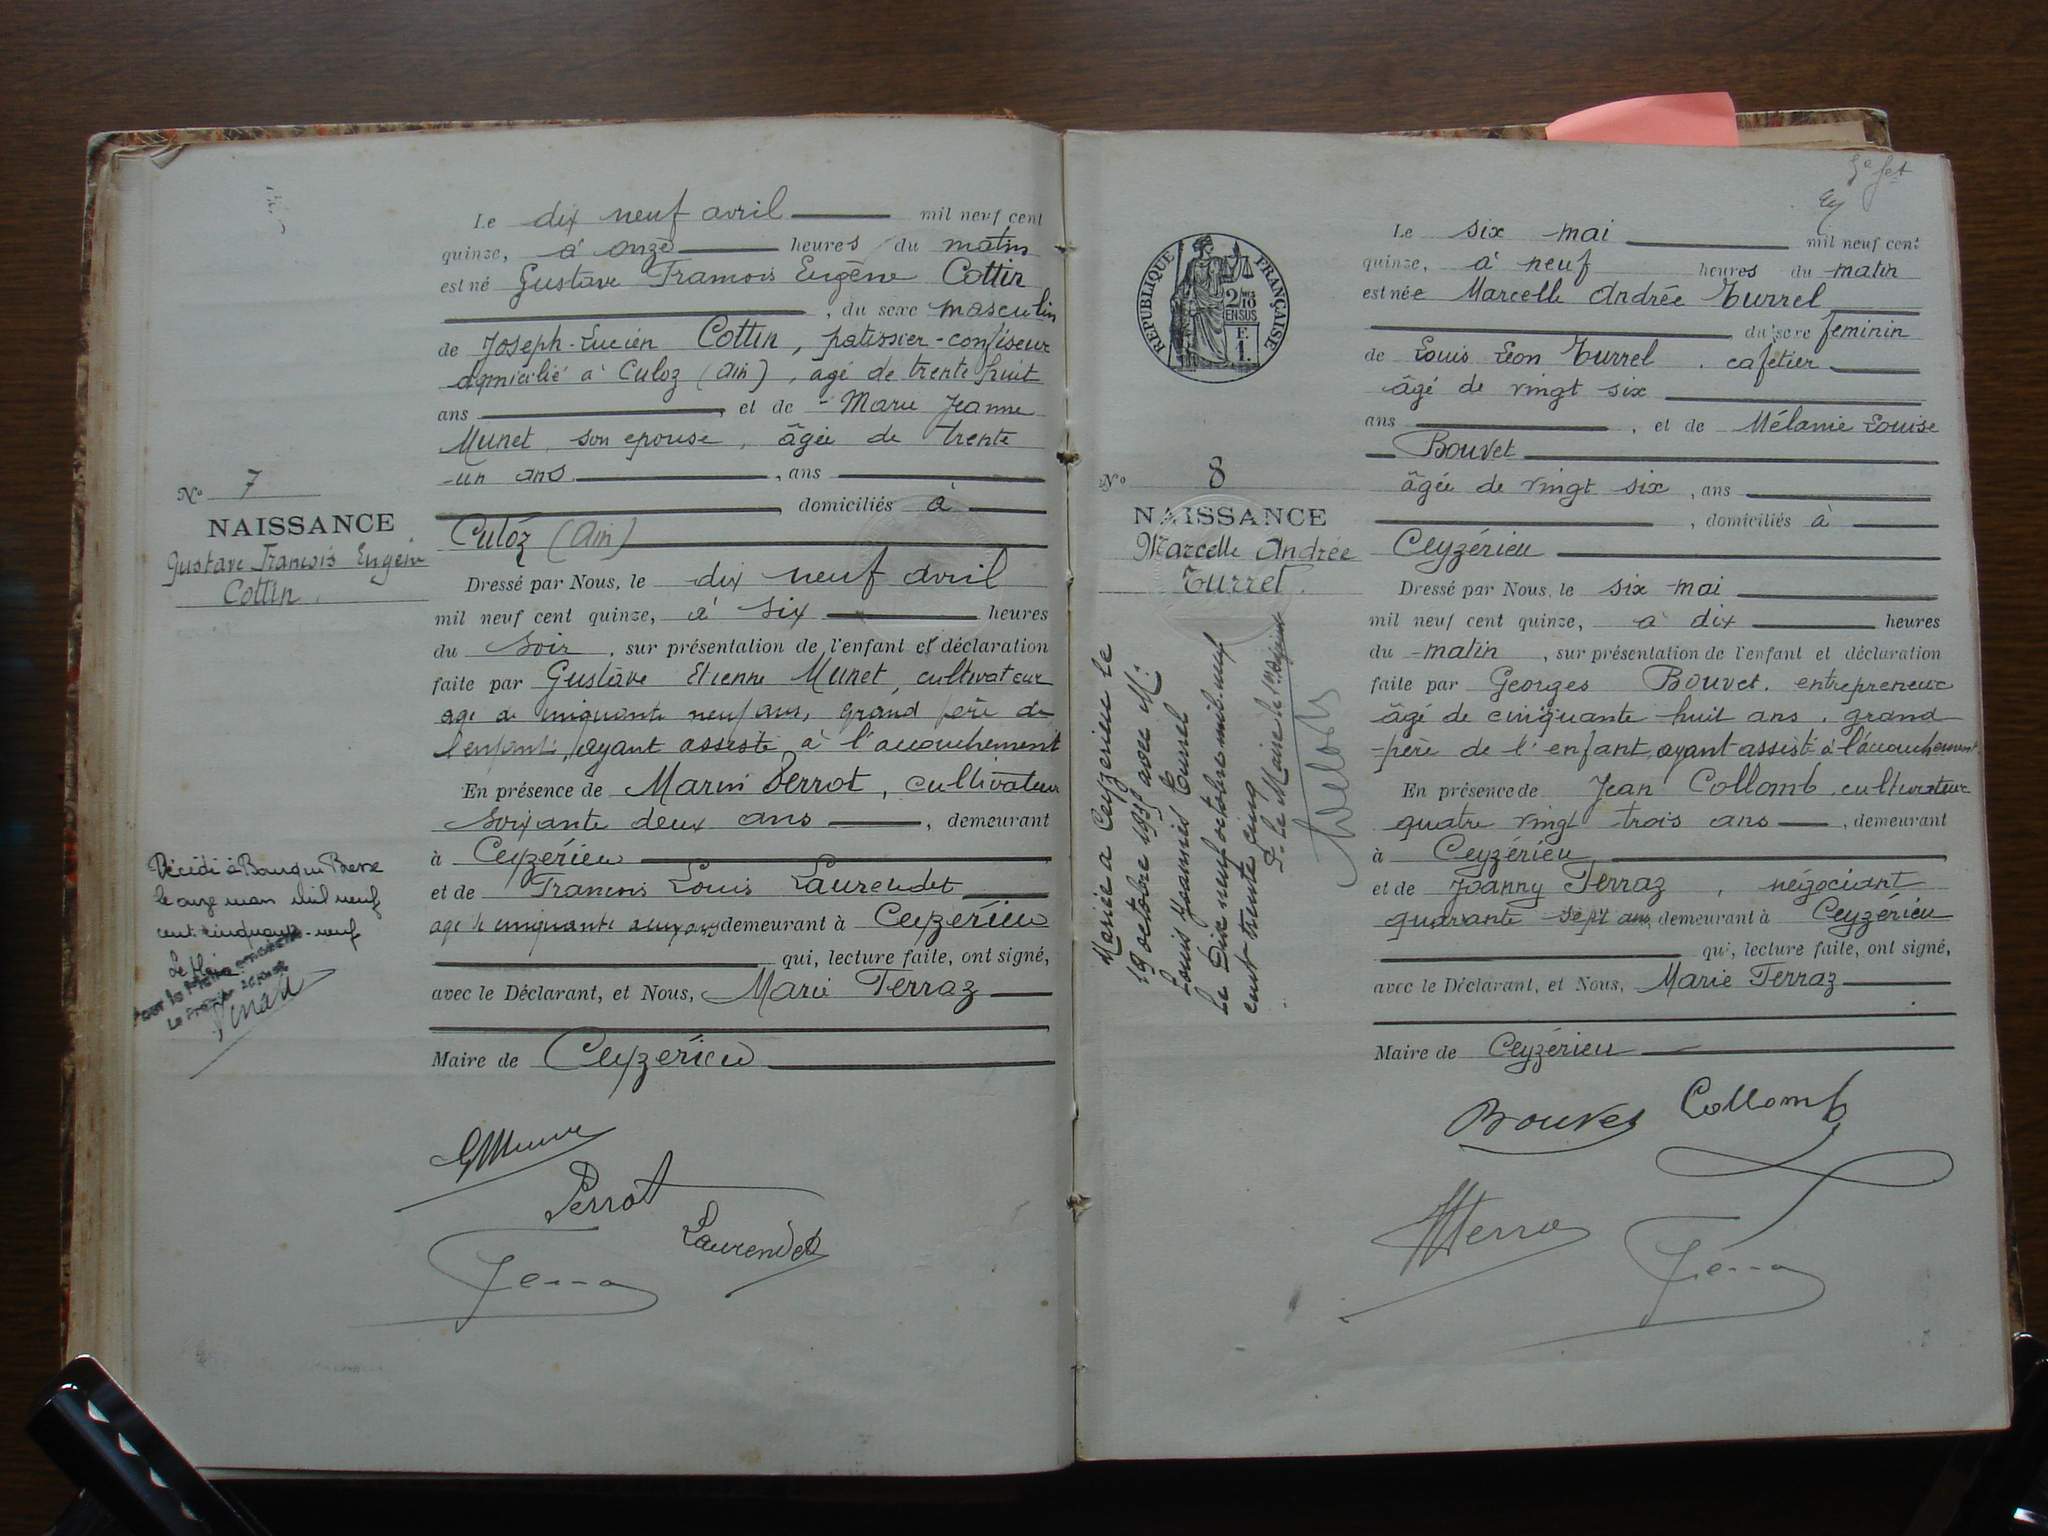 Le dix neuf avril mil neuf cent
quinze, à onze heures du matin
est né Gustave Francois Eugène Cottin
, du sexe masculin
de Joseph-Lucien Cottin, patissier-confiseur
domicilié à Culoz (Ain), agé de trente huit
ans , et de Marie Jeanne
Munet, son epouse, âgée de trente
un ans , ans
, domiciliés à
Culoz (Ain)
Dressé par Nous, le dix neuf avril
mil neuf cent quinze, à six heures
du soir, sur présentation de l'enfant et déclaration
faite par Gustave Etienne Munet, cultivateur
age de cinquante neuf ans, grand père de
l'enfant, ayant assisté à l'accouchement
En présence de Marin Perrot, cultivateur
soixante deux ans , demeurant
à Ceyzérieu
et de Francois Louis Laurendet
age de cinquante ans demeurant à Ceyzérieu
qui, lecture faite, ont signé,
avec le Déclarant, et Nous, Marie Terraz
Maire de Ceyzérieu
No 7
NAISSANCE
Gustave Francois Eugène
Cottin.
Décédé à
le onze mars mil neuf
cent cinquante-neuf
Le Maire
Perrot
Laurendet
5e fet
RÉPUBLIQUE FRANÇAISE
2/10
EN SUS
F.
1.
Le six mai mil neuf cent
quinze, à neuf heures du matin
est née Marcelle Andrée Turrel
du sexe feminin
de Louis Léon Turrel, cafetier
âgé de vingt six
ans , et de Mélanie Louise
Bouvet
âgée de vingt six , ans
, domiciliés à
Ceyzérieu
Dressé par Nous, le six mai
mil neuf cent quinze, à dix heures
du matin , sur présentation de l'enfant et déclaration
faite par Georges Bouvet, entrepreneur
âgé de cinquante huit ans, grand
-père de l'enfant, ayant assisté à l'accouchement
En présence de Jean Collomb, cultivateur
quatre vingt trois ans , demeurant
à Ceyzérieu
et de Joanny Terraz , négociant
quarante sept ans, demeurant à Ceyzérieu
qui, lecture faite, ont signé,
avec le Déclarant, et Nous, Marie Terraz
Maire de Ceyzérieu
No 8
NAISSANCE
Marcelle Andrée
Turrel.
Mariée à Ceyzérieu le
19 octobre 1935 avec M.
Louis Joannès Turrel
Le Dix neuf octobre mil neuf
cent trente cinq
P. le Maire
Bouvet
Collomb